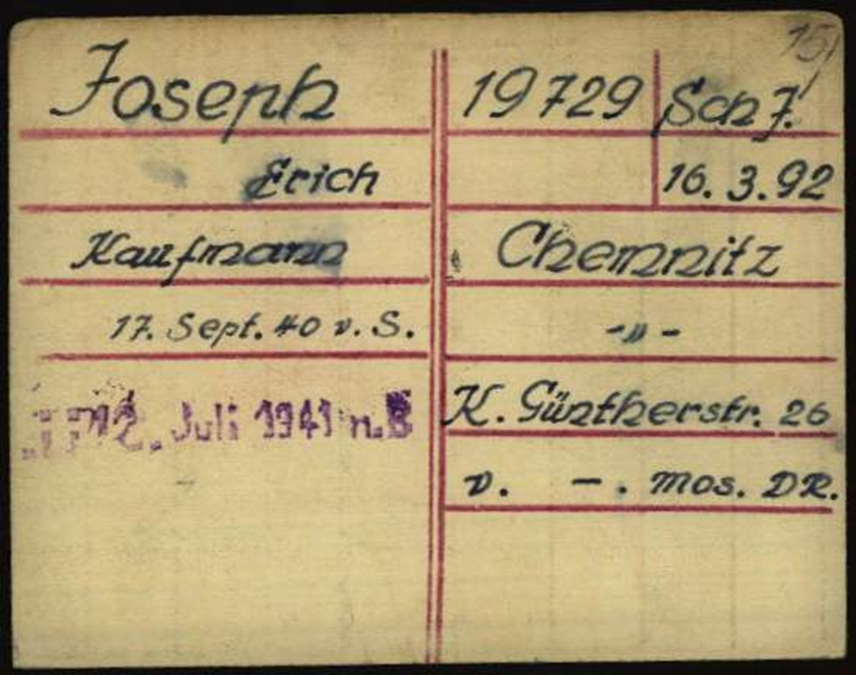 15
Joseph
19729
Sch J.
Erich
16. 3. 92
Kaufmann
Chemnitz
17. Sept. 40 v. S.
-"-
12. Juli 1941 n. B
K. Güntherstr. 26
v. - . mos. DR.